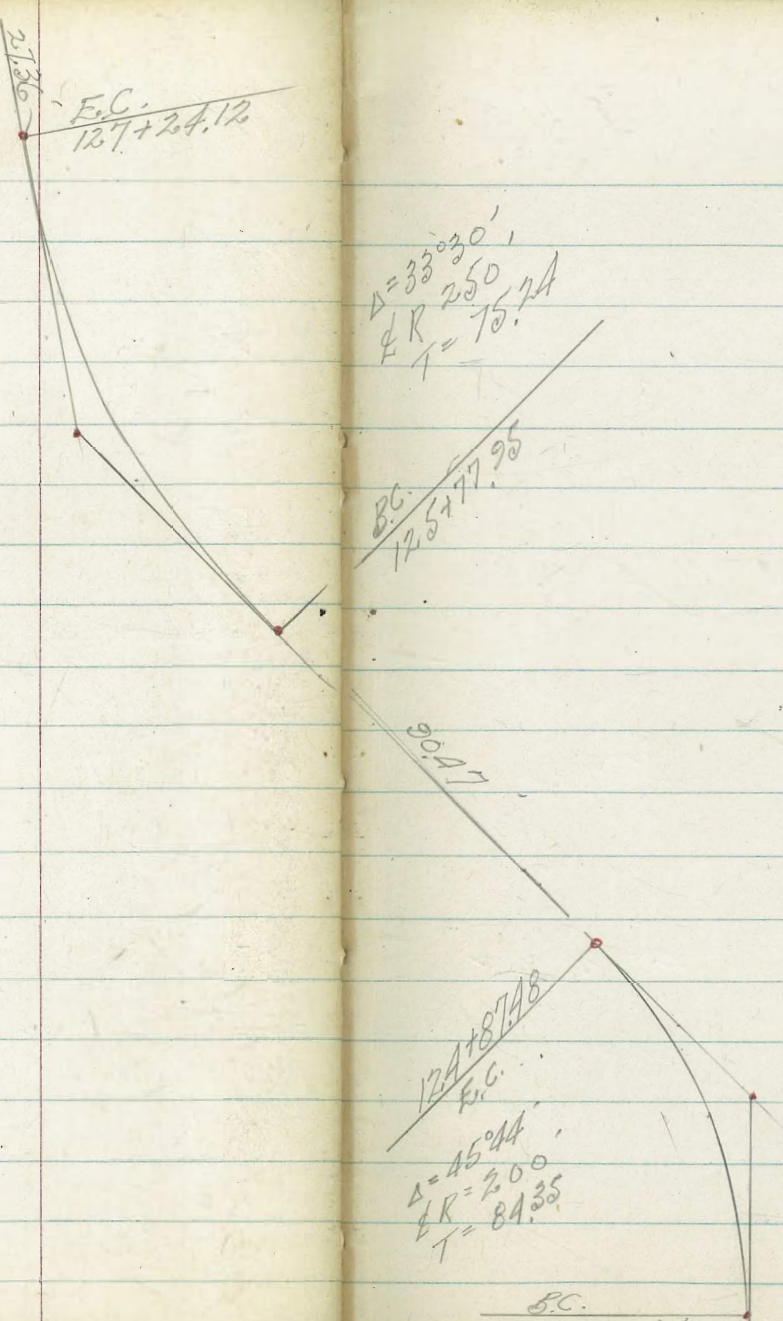 27.36
E.C.
127+24.12
Δ=33°30'
⅊ R 250'
T= 75.24
B.C.
125+77.95
90.47
124+87.48
E.C.
Δ=45°44'
⅊ R=200'
T= 84.35
B.C.